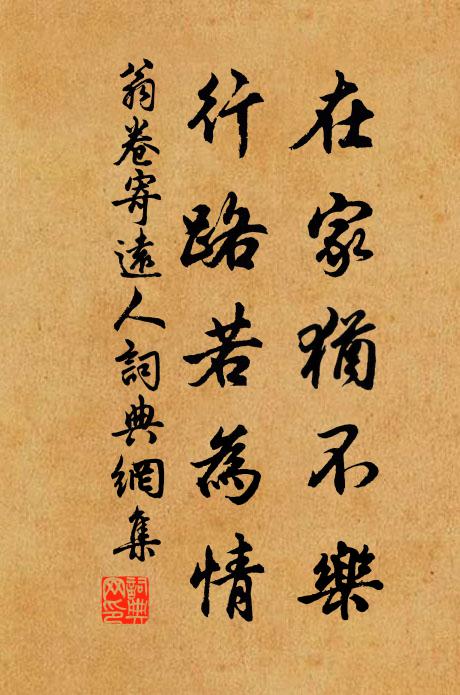 在家猶不樂
行路若為情
翁卷寄遠人詞典網集
詞典网印